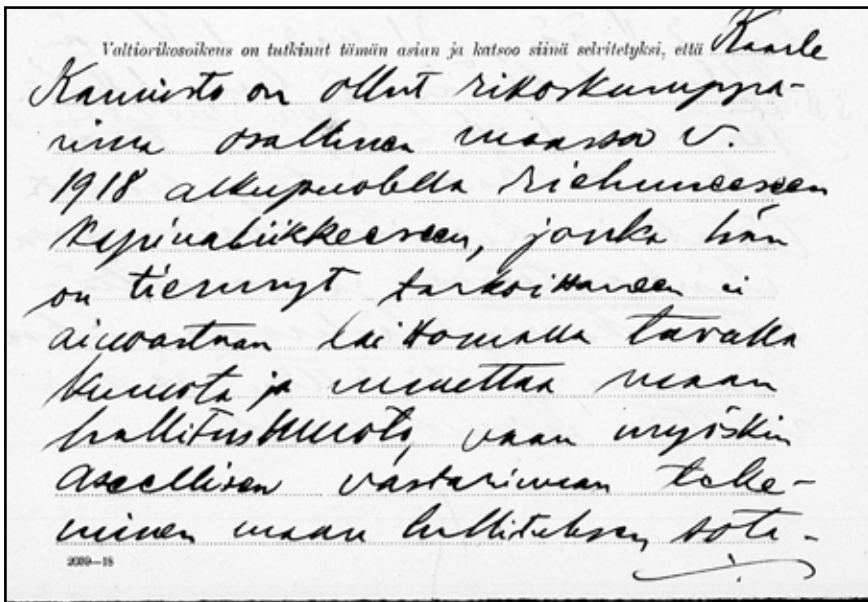 Valtiorikosoikeus on tutkinut tämän asian ja katsoo siinä selvitetyksi, että Kaarle
Kannisto on ollut rikoskumppa-
nina osallinen maassa v.
1918 alkupuolella riehuneeseen
kapinaliikkeeseen, jonka hän
on tiennyt tarkoittaneen ei
ainoastaan laittomalla tavalla
kumota ja muuttaa maan
hallitusmuoto, vaan myöskin
aseellisen vastarinnan teke-
minen maan hallituksen sota-
2039—18